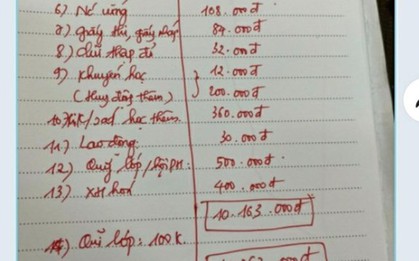 6) Nước uống 108.000đ
7) giấy thi, giấy nháp 84.000đ
8) chữ thập đỏ 32.000đ
9) Khuyến học 12.000đ
(Huy động thêm) 200.000đ
học thêm 360.000đ
11) Lao động: 30.000đ
12) Quỹ lớp/hội PH: 500.000đ
13) XH hoá 400.000đ
10.163.000đ
Quĩ lớp: 100K.